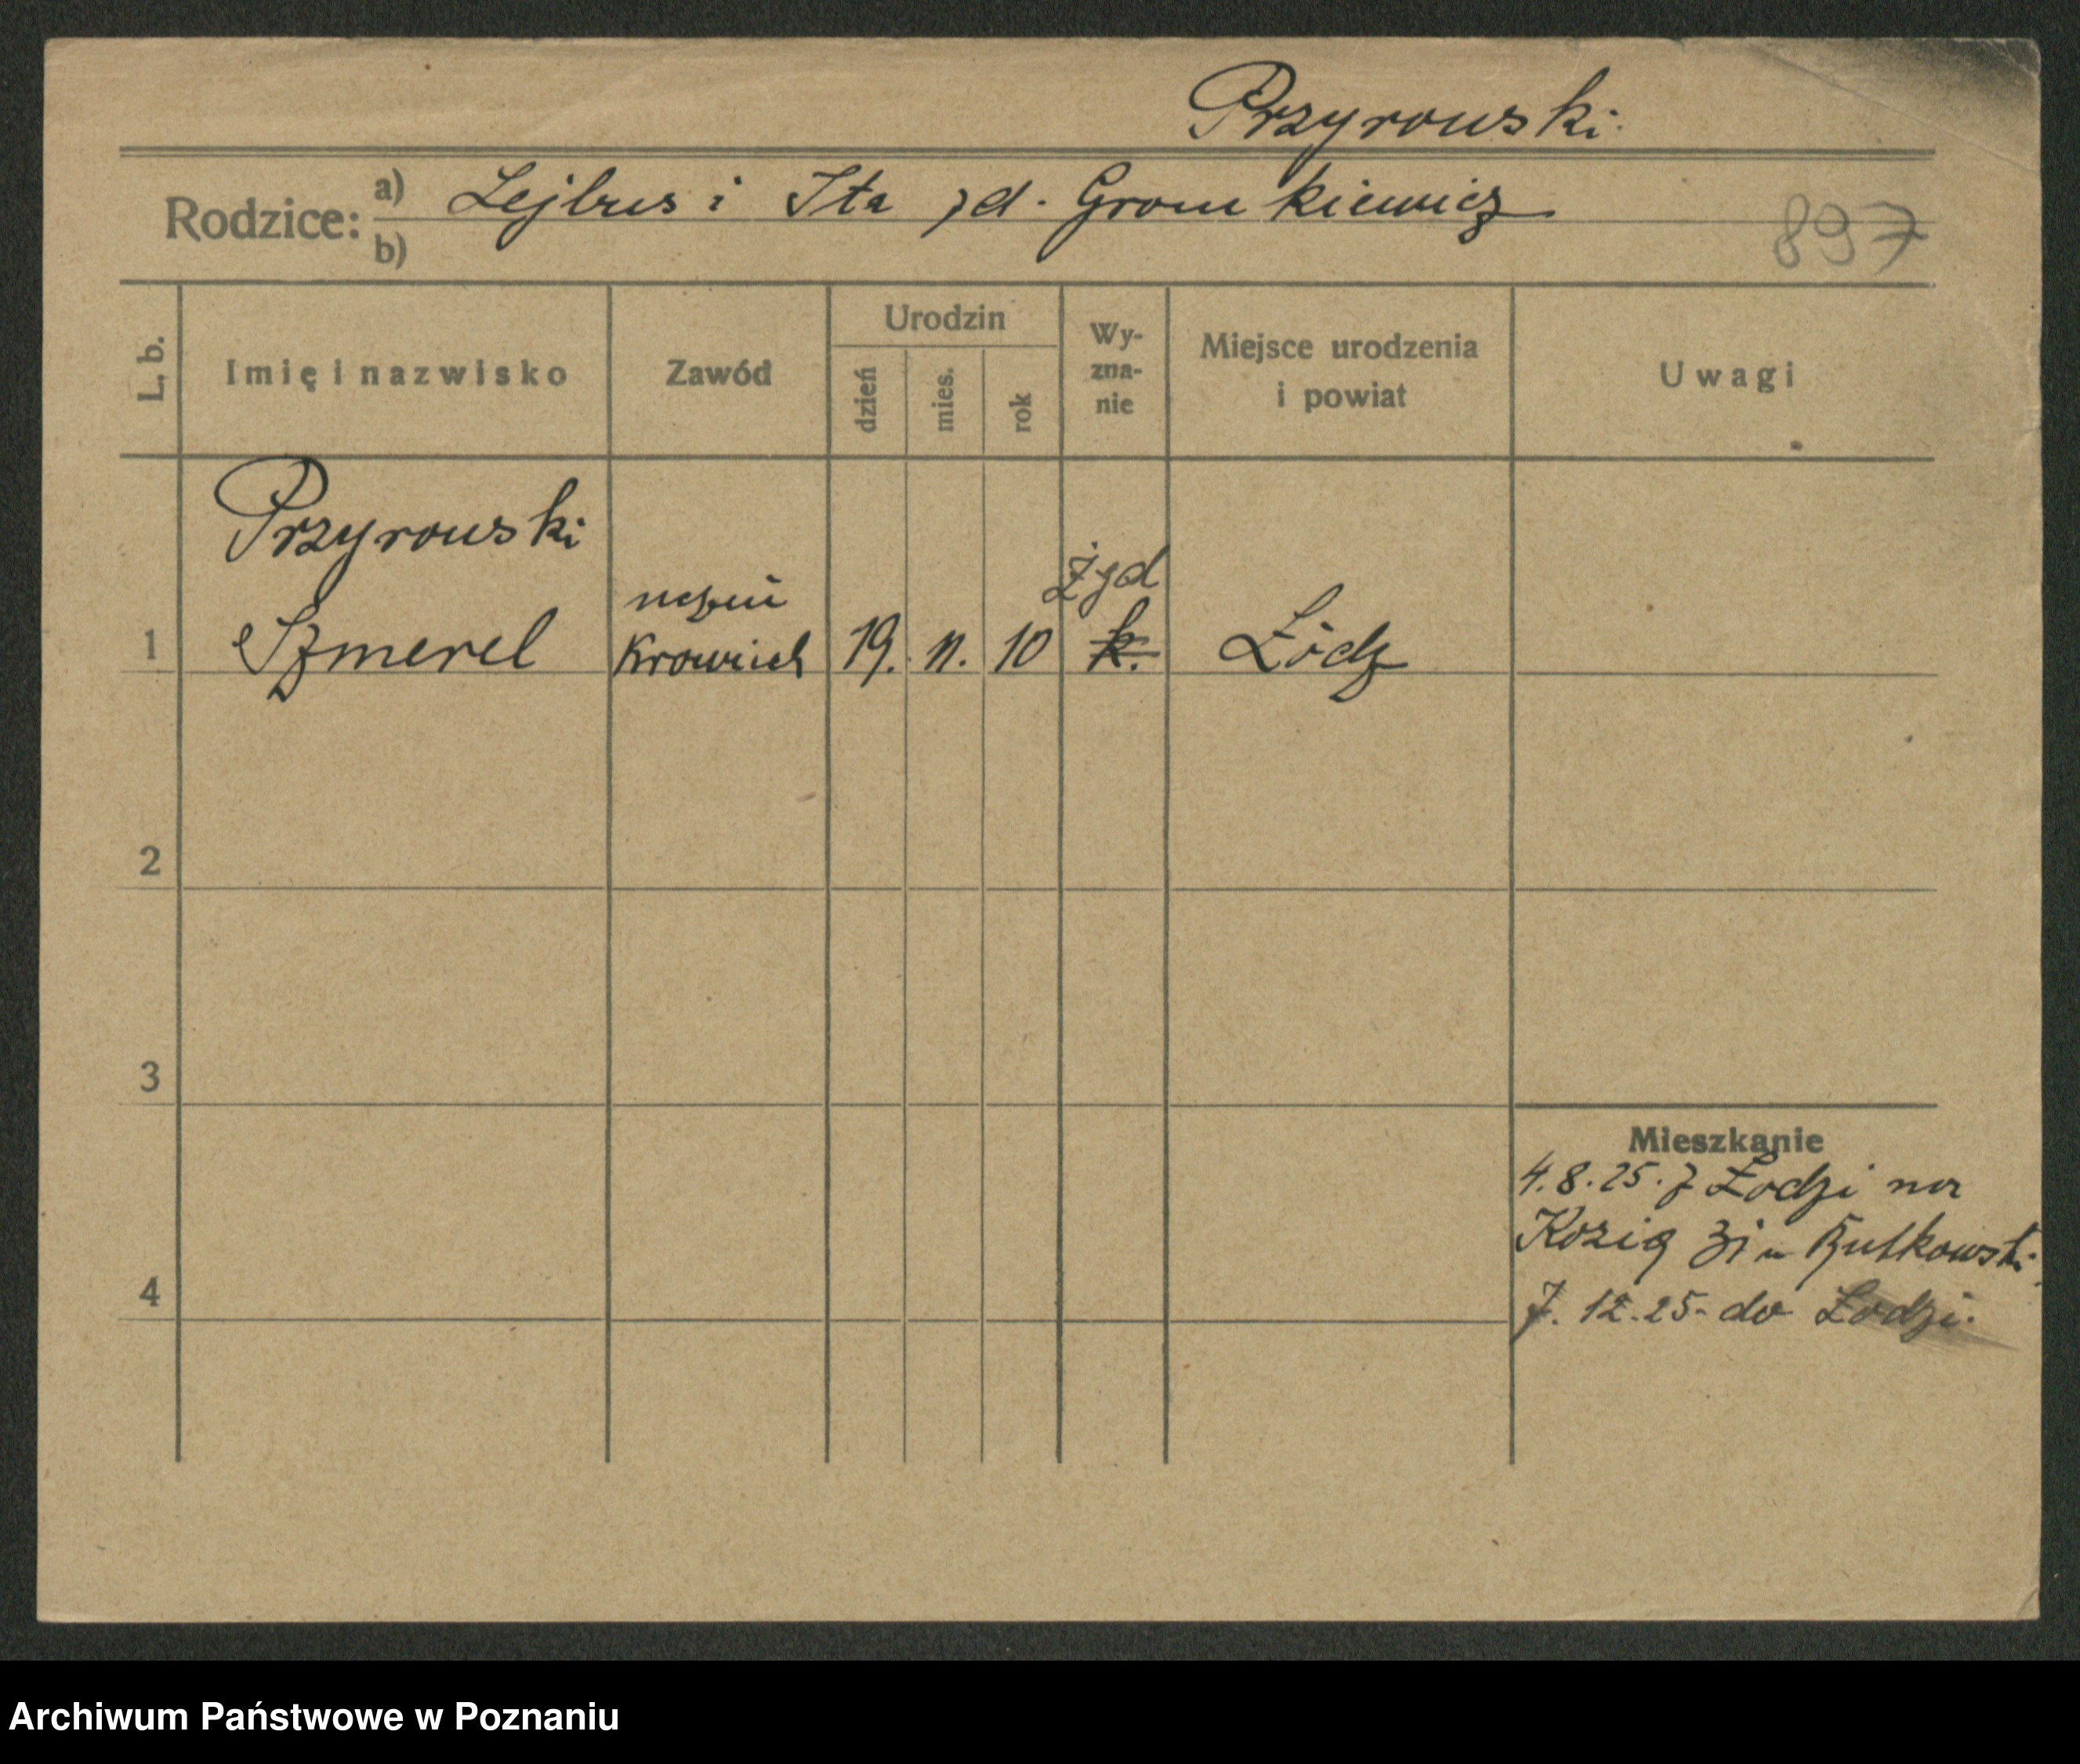 Przyrowski.
Rodzice: a) Lejbus i Ita zd. Gromkiewicz
b)
897
L. b.
Imię i nazwisko
Zawód
Urodzin
dzień
mies.
rok
Wy-
zna-
nie
Miejsce urodzenia
i powiat
Uwagi
Przyrowski
Szmerel
uczeń
krawiech
19. 11. 10
Żyd
k.
Łódz
1
2
3
4
Mieszkanie
4.8.25. z Łodzi na
Kozią 31 u Rutkowski
7. 12.25. do Łodzi.
Archiwum Państwowe w Poznaniu